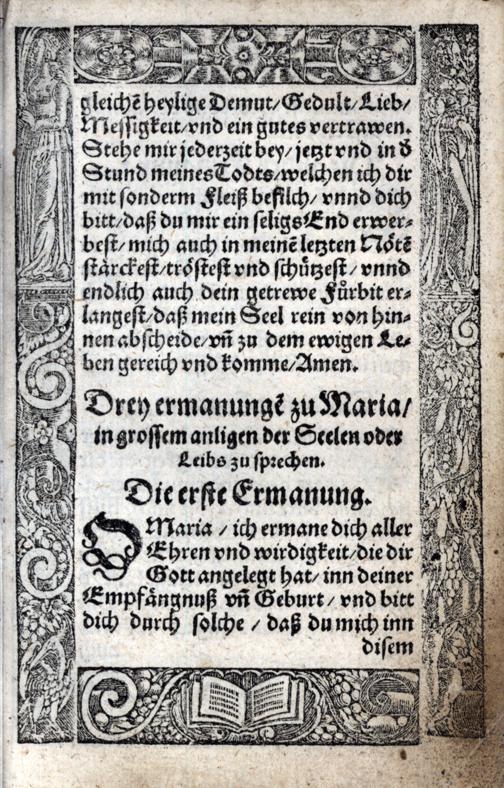 gleichẽ heylige Demut/ Gedult/ Lieb/
Messigkeit/ vnd ein gutes vertrawen.
Stehe mir jederzeit bey/ jetzt vnd in d̕
Stund meines Todts/ welchen ich dir
mit sonderm Fleiß befilch/ vnnd dich
bitt/ daß du mir ein seligs End erwer-
best/ mich auch in meinẽ letzten Nötẽ
stärckest/ tröstest vnd schützest/ vnnd
endlich auch dein getrewe Fůrbit er-
langest/ daß mein Seel rein von hin-
nen abscheide/ vñ zu dem ewigen Le-
ben gereich vnd komme/ Amen.
Drey ermanungẽ zu Maria/
in grossem anligen der Seelen oder
Leibs zu sprechen.
Die erste Ermanung.
O Maria / ich ermane dich aller
Ehren vnd wirdigkeit/ die dir
Gott angelegt hat/ inn deiner
Empfängnuß vñ Geburt / vnd bitt
dich durch solche / daß du mich inn
disem